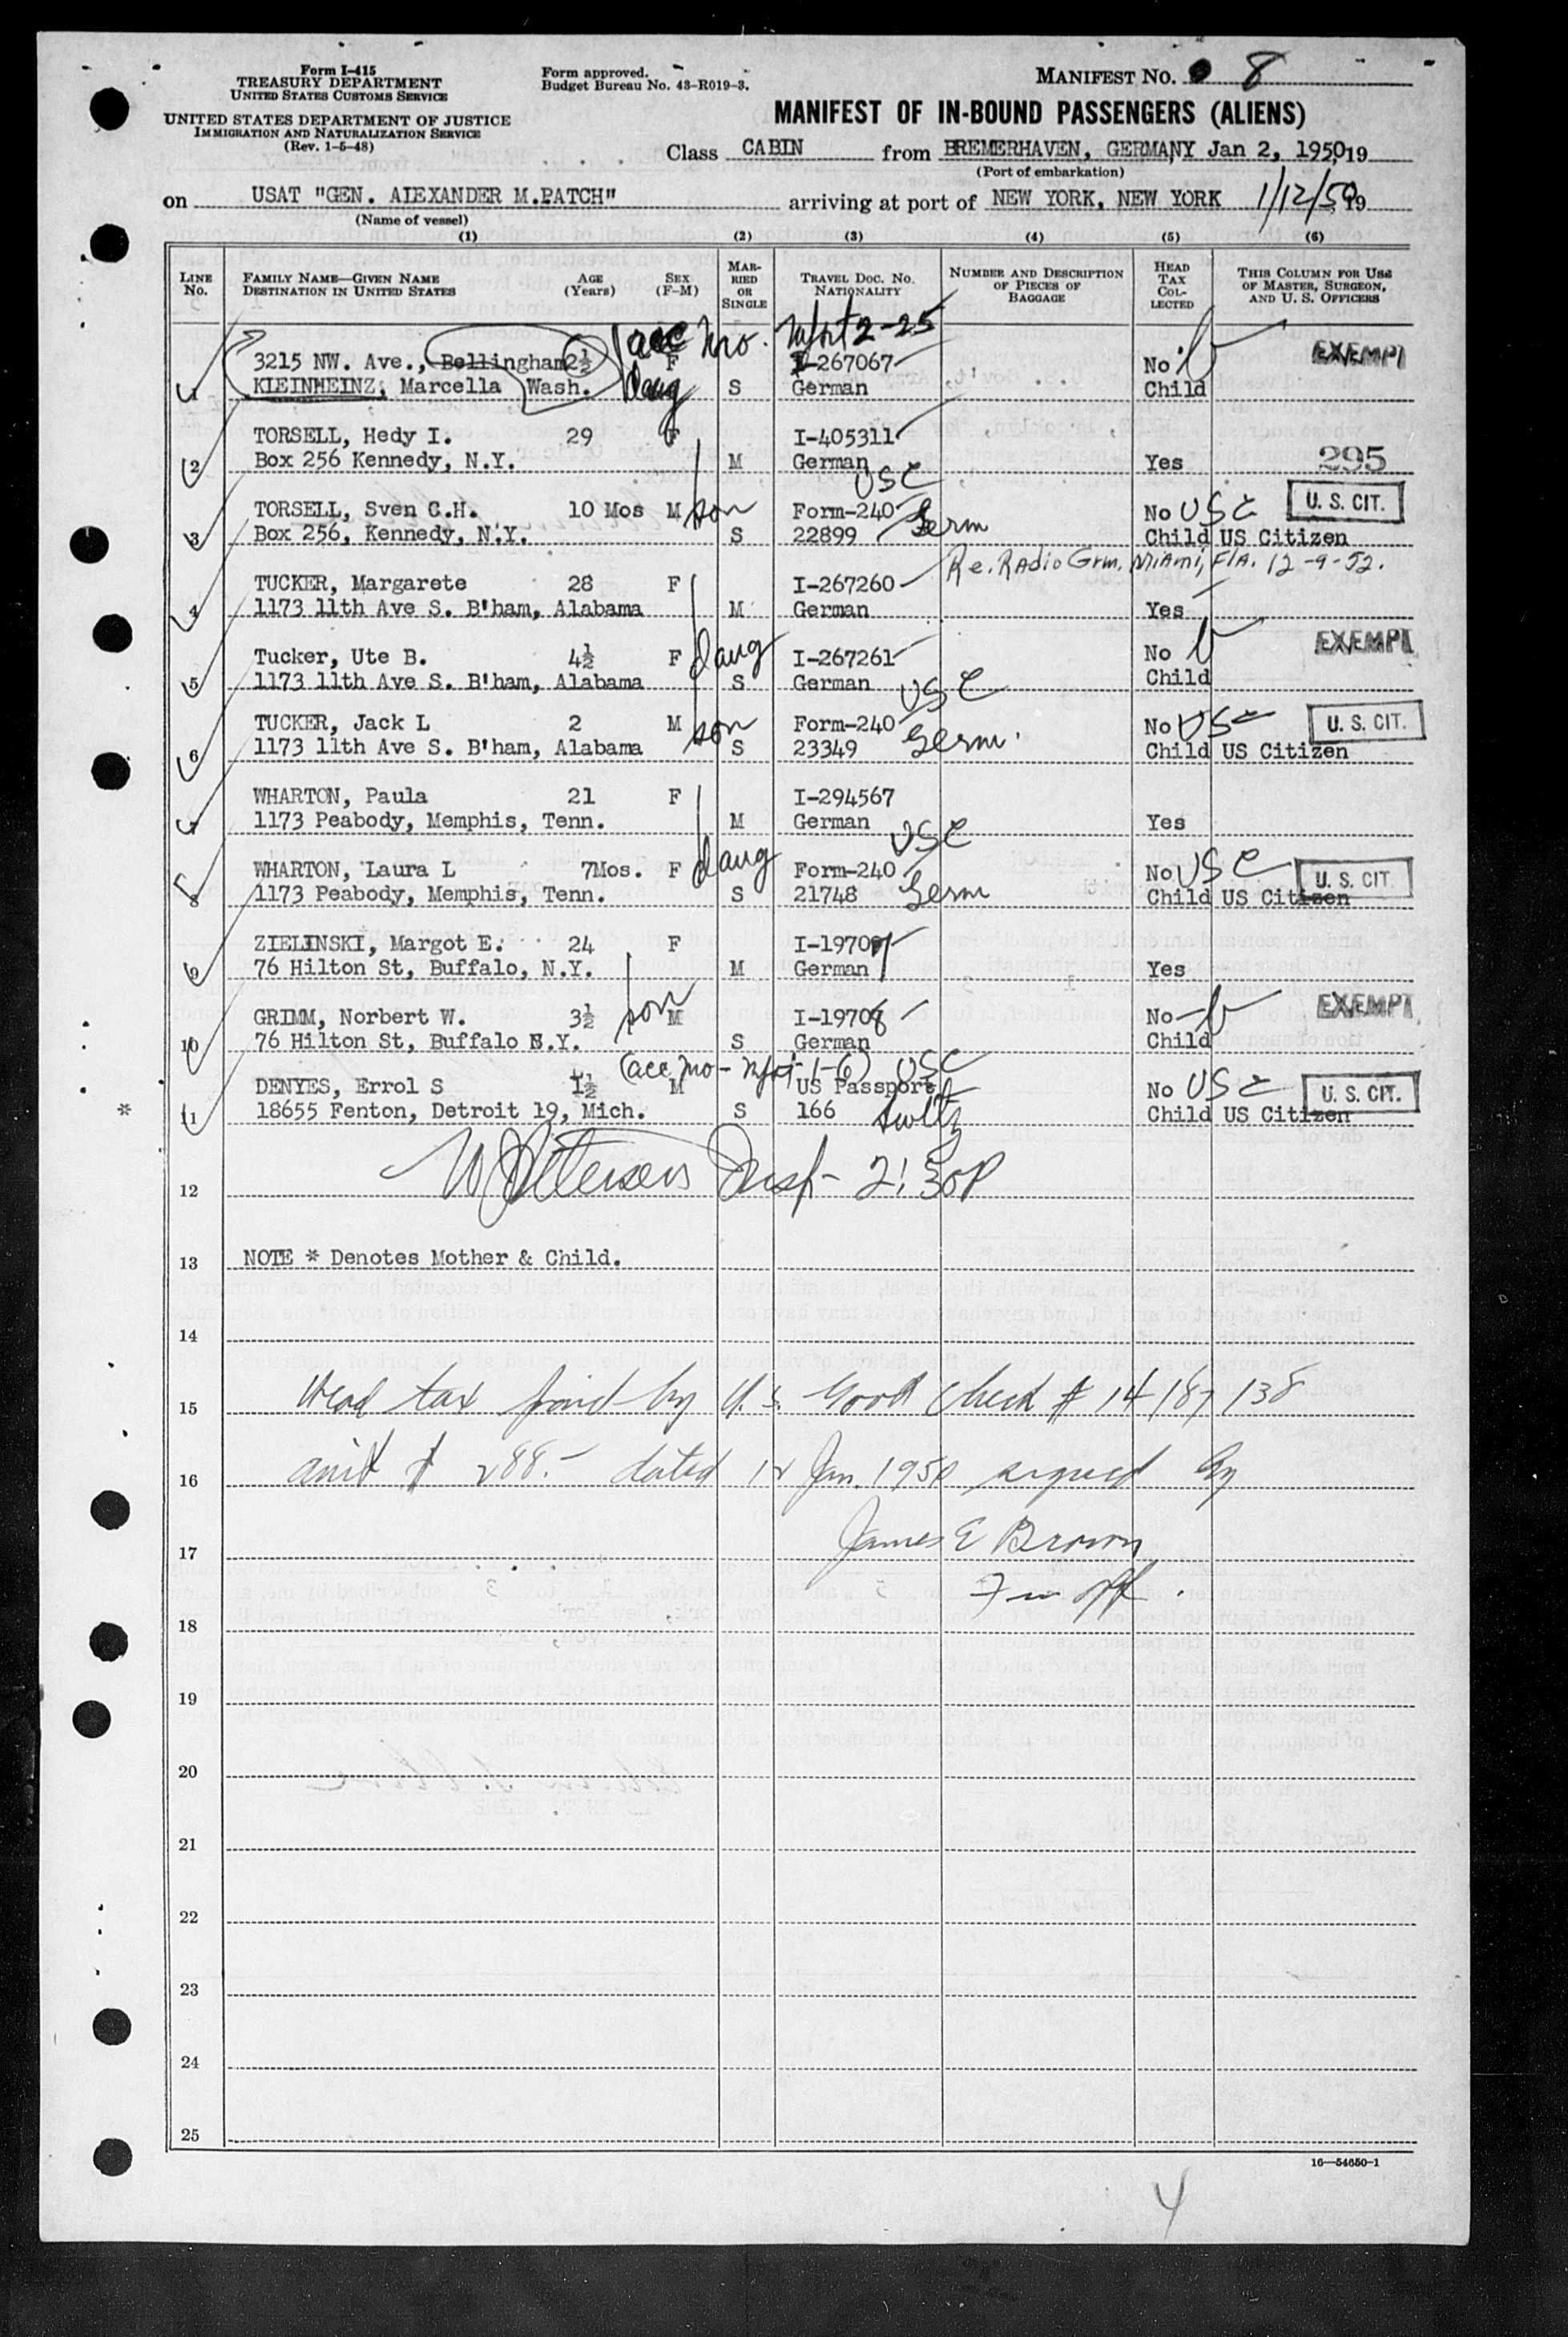 Form I-415
TREASURY DEPARTMENT
UNITED STATES CUSTOMS SERVICE
UNITED STATES DEPARTMENT OF JUSTICE
IMMIGRATION AND NATURALIZATION SERVICE
(Rev. 1-5-48)
Form approved.
Budget Bureau No. 43-R019-3.
MANIFEST NO. 8
MANIFEST OF IN-BOUND PASSENGERS (ALIENS)
Class CABIN from BREMERHAVEN, GERMANY Jan 2, 1950, 19
(Port of embarkation)
on USAT "GEN. ALEXANDER M.PATCH" arriving at port of NEW YORK, NEW YORK 1/12/50 19
(Name of vessel)
(1) (2) (3) (4) (5) (6)
LINE NO. FAMILY NAME—GIVEN NAME DESTINATION IN UNITED STATES AGE (Years) SEX (F-M) MARRIED OR SINGLE TRAVEL DOC. NO. NATIONALITY NUMBER AND DESCRIPTION OF PIECES OF BAGGAGE HEAD TAX COLLECTED THIS COLUMN FOR USE OF MASTER, SURGEON, AND U. S. OFFICERS
acc mo. Mfst 2-25
3215 NW. Ave., Bellingham 2½ F I-267067 No EXEMPT
1 KLEINHEINZ, Marcella Wash. daug S German Child
TORSELL, Hedy I. 29 F I-405311
2 Box 256 Kennedy, N.Y. M German Yes 295
USC
TORSELL, Sven C.H. 10 Mos M son Form-240 Germ No USC U. S. CIT.
3 Box 256, Kennedy, N.Y. S 22899 Child US Citizen
Re. Radio Grm, Miami, Fla. 12-9-52.
TUCKER, Margarete 28 F I-267260
4 1173 11th Ave S. B'ham, Alabama M German Yes
Tucker, Ute B. 4½ F daug I-267261 No EXEMPT
5 1173 11th Ave S. B'ham, Alabama S German Child
USC
TUCKER, Jack L 2 M son Form-240 No USC U. S. CIT.
6 1173 11th Ave S. B'ham, Alabama S 23349 Germ. Child US Citizen
WHARTON, Paula 21 F I-294567
7 1173 Peabody, Memphis, Tenn. M German Yes
USC
WHARTON, Laura L 7Mos. F daug Form-240 No USC U. S. CIT.
8 1173 Peabody, Memphis, Tenn. S 21748 Germ Child US Citizen
ZIELINSKI, Margot E. 24 F I-19707
9 76 Hilton St, Buffalo, N.Y. M German Yes
GRIMM, Norbert W. 3½ son M I-19708 No EXEMPT
10 76 Hilton St, Buffalo N.Y. S German Child
(acc mo - Mfst 1-6) USC
DENYES, Errol S 1½ M US Passport No USC U. S. CIT.
* 11 18655 Fenton, Detroit 19, Mich. S 166 Switz Child US Citizen
12 Insp- 2:30P
13 NOTE * Denotes Mother & Child.
14
15 Head tax paid by U.S. Govt Check # 14187138
16 amt $ 288.- dated 12 Jan. 1950 signed by
17 James E Brown
18
19
20
21
22
23
24
25
16—54650-1
4